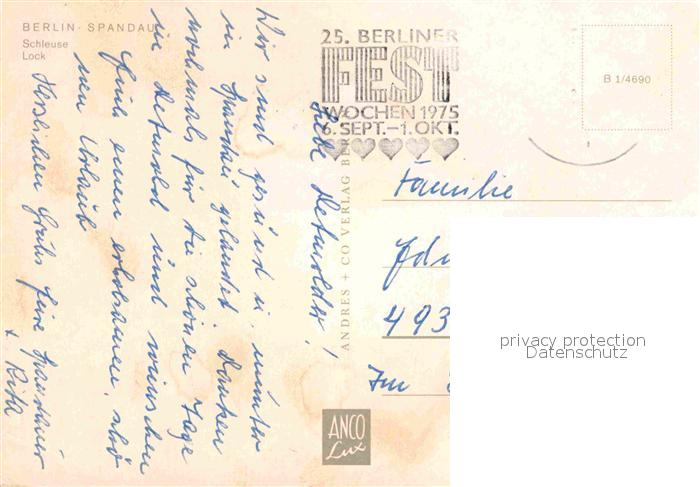 BERLIN - SPANDAU
Schleuse
Lock
25. BERLINER
FEST
WOCHEN 1975
6. SEPT.–1. OKT.
B 1/4690
Liebe Detmolder!
Wir sind gesund u. munter
in Spandau gelandet. Danken
nochmals für die schönen Tage
in Detmold und wünschen
Euch einen erholsamen, schö
nen Urlaub
Herzlichen Gruß Eure Spandauer
+
ANDRES + CO VERLAG BER
ANCO
Lux
Familie
493
Im
privacy protection
Datenschutz